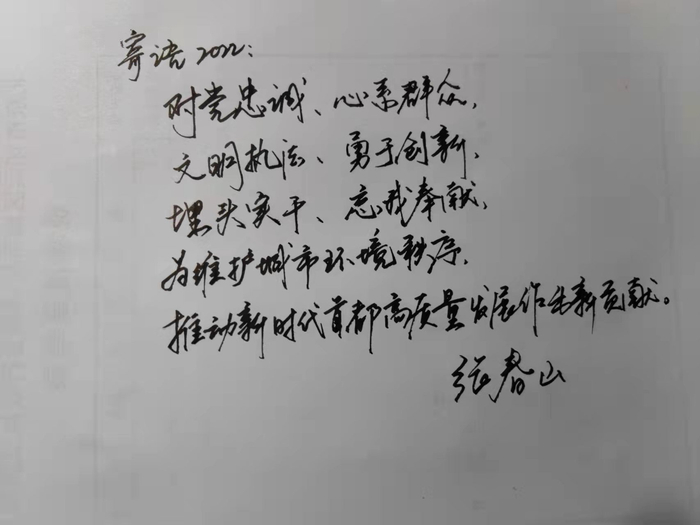 寄语2022:
对党忠诚、心系群众,
文明执法、勇于创新,
埋头实干、忘我奉献,
为维护城市环境秩序,
推动新时代首都高质量发展作出新贡献。
张春山